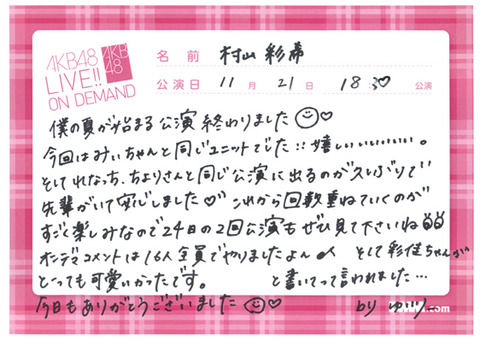 AKB48
LIVE!!
ON DEMAND
AKB
48
名前 村山彩希
公演日 11月21日 18:30 公演
僕の夏が始まる公演終わりました♡
今回はみぃちゃんと同じユニットでした!! 嬉しいいいいいい。
そしてれなっち、ちよりさんと同じ公演に出るのが久しぶりで
先輩がいて安心しました♡ これから回数重ねていくのが
すごく楽しみなので24日の2回公演もぜひ見て下さいね
オンデマコメントは16人全員でやりましたよん♪ そして彩佳ちゃんが
とっても可愛いかったです。 と書いてって言われました…
今日もありがとうございました♡ by ゆいり
.com